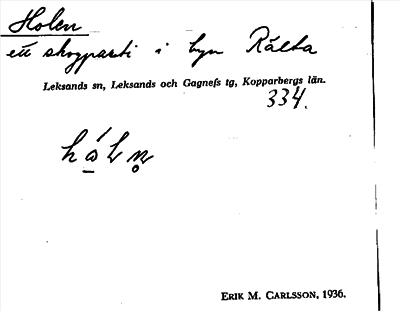 Holen
ett skogparti i byn Rälta
Leksands sn, Leksands och Gagnefs tg, Kopparbergs län.
334.
ERIK M. CARLSSON, 1936.